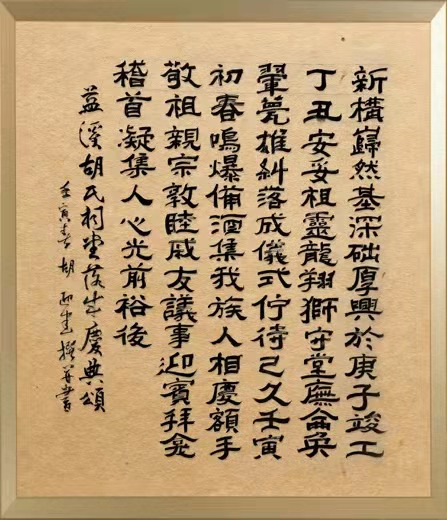 新構巋然基深础厚興於庚子竣工
丁丑安妥祖靈龍翔獅守堂廡侖奐
翬甍雄糾落成儀式佇待已久壬寅
初春鳴爆備酒集我族人相慶額手
敬祖親宗敦睦戚友議事迎賓拜龛
稽首凝集人心光前裕後
益溪胡氏祠堂落成慶典頌
壬寅春胡迎建撰并書